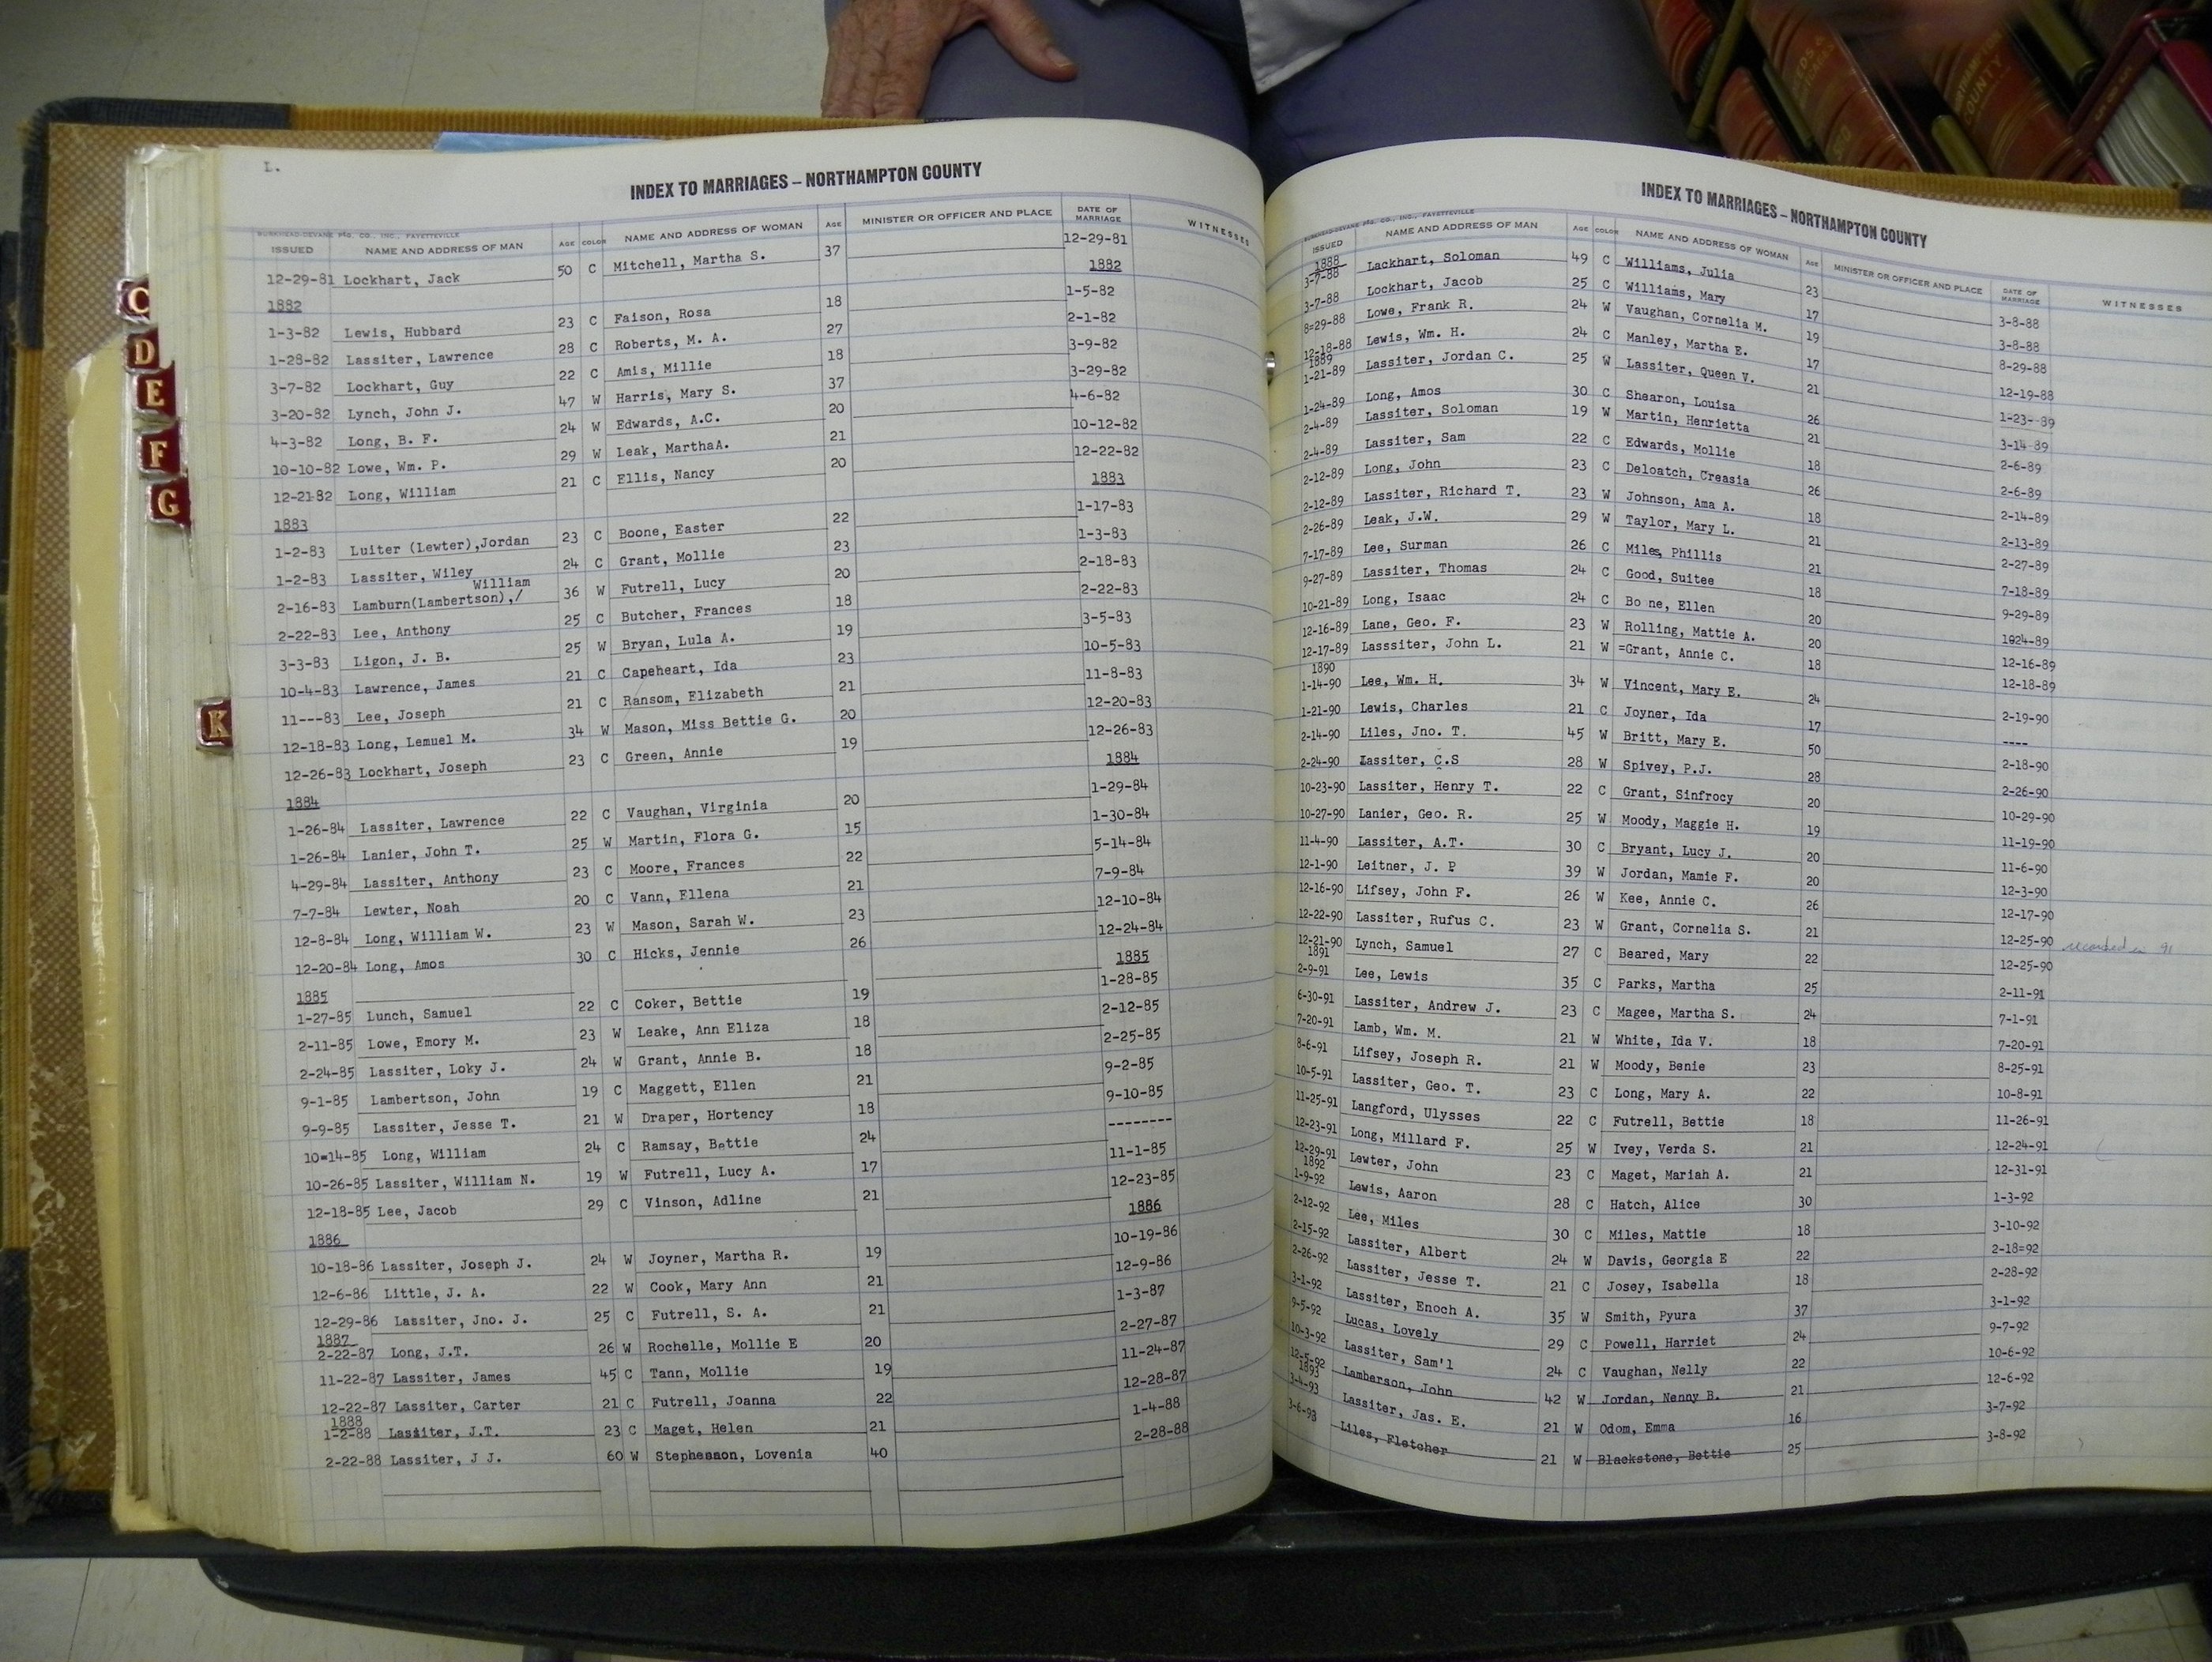 L.
INDEX TO MARRIAGES – NORTHAMPTON COUNTY
BURKHEAD-DEVANE PTG. CO., INC., FAYETTEVILLE
ISSUED NAME AND ADDRESS OF MAN AGE COLOR NAME AND ADDRESS OF WOMAN AGE MINISTER OR OFFICER AND PLACE DATE OF MARRIAGE WITNESSES
12-29-81 Lockhart, Jack 50 C Mitchell, Martha S. 37 12-29-81
1882 1882
1-3-82 Lewis, Hubbard 23 C Faison, Rosa 18 1-5-82
1-28-82 Lassiter, Lawrence 28 C Roberts, M. A. 27 2-1-82
3-7-82 Lockhart, Guy 22 C Amis, Millie 18 3-9-82
3-20-82 Lynch, John J. 47 W Harris, Mary S. 37 3-29-82
4-3-82 Long, B. F. 24 W Edwards, A.C. 20 4-6-82
10-10-82 Lowe, Wm. P. 29 W Leak, MarthaA. 21 10-12-82
12-2182 Long, William 21 C Ellis, Nancy 20 12-22-82
1883 1883
1-2-83 Luiter (Lewter),Jordan 23 C Boone, Easter 22 1-17-83
1-2-83 Lassiter, Wiley 24 C Grant, Mollie 23 1-3-83
William
2-16-83 Lamburn(Lambertson),/ 36 W Futrell, Lucy 20 2-18-83
2-22-83 Lee, Anthony 25 C Butcher, Frances 18 2-22-83
3-3-83 Ligon, J. B. 25 W Bryan, Lula A. 19 3-5-83
10-4-83 Lawrence, James 21 C Capeheart, Ida 23 10-5-83
11---83 Lee, Joseph 21 C Ransom, Elizabeth 21 11-8-83
12-18-83 Long, Lemuel M. 34 W Mason, Miss Bettie G. 20 12-20-83
12-26-83 Lockhart, Joseph 23 C Green, Annie 19 12-26-83
1884 1884
1-26-84 Lassiter, Lawrence 22 C Vaughan, Virginia 20 1-29-84
1-26-84 Lanier, John T. 25 W Martin, Flora G. 15 1-30-84
4-29-84 Lassiter, Anthony 23 C Moore, Frances 22 5-14-84
7-7-84 Lewter, Noah 20 C Vann, Ellena 21 7-9-84
12-8-84 Long, William W. 23 W Mason, Sarah W. 23 12-10-84
12-20-84 Long, Amos 30 C Hicks, Jennie 26 12-24-84
1885 1885
1-27-85 Lunch, Samuel 22 C Coker, Bettie 19 1-28-85
2-11-85 Lowe, Emory M. 23 W Leake, Ann Eliza 18 2-12-85
2-24-85 Lassiter, Loky J. 24 W Grant, Annie B. 18 2-25-85
9-1-85 Lambertson, John 19 C Maggett, Ellen 21 9-2-85
9-9-85 Lassiter, Jesse T. 21 W Draper, Hortency 18 9-10-85
10=14-85 Long, William 24 C Ramsay, Bettie 24 --------
10-26-85 Lassiter, William N. 19 W Futrell, Lucy A. 17 11-1-85
12-18-85 Lee, Jacob 29 C Vinson, Adline 21 12-23-85
1886 1886
10-18-86 Lassiter, Joseph J. 24 W Joyner, Martha R. 19 10-19-86
12-6-86 Little, J. A. 22 W Cook, Mary Ann 21 12-9-86
12-29-86 Lassiter, Jno. J. 25 C Futrell, S. A. 21 1-3-87
1887
2-22-87 Long, J.T. 26 W Rochelle, Mollie E 20 2-27-87
11-22-87 Lassiter, James 45 C Tann, Mollie 19 11-24-87
12-22-87 Lassiter, Carter 21 C Futrell, Joanna 22 12-28-87
1888
1-2-88 Lassiter, J.T. 23 C Maget, Helen 21 1-4-88
2-22-88 Lassiter, J J. 60 W Stephenson, Lovenia 40 2-28-88
C
D
E
F
G
K
INDEX TO MARRIAGES – NORTHAMPTON COUNTY
BURKHEAD-DEVANE PTG. CO., INC., FAYETTEVILLE
ISSUED NAME AND ADDRESS OF MAN AGE COLOR NAME AND ADDRESS OF WOMAN AGE MINISTER OR OFFICER AND PLACE DATE OF MARRIAGE WITNESSES
1888
3-7-88 Lackhart, Soloman 49 C Williams, Julia 23 3-8-88
3-7-88 Lockhart, Jacob 25 C Williams, Mary 17 3-8-88
8=29-88 Lowe, Frank R. 24 W Vaughan, Cornelia M. 19 8-29-88
12-18-88 Lewis, Wm. H. 24 C Manley, Martha E. 17 12-19-88
1889
1-21-89 Lassiter, Jordan C. 25 W Lassiter, Queen V. 21 1-23-89
1-24-89 Long, Amos 30 C Shearon, Louisa 26 3-14-89
2-4-89 Lassiter, Soloman 19 W Martin, Henrietta 21 2-6-89
2-4-89 Lassiter, Sam 22 C Edwards, Mollie 18 2-6-89
2-12-89 Long, John 23 C Deloatch, Creasia 26 2-14-89
2-12-89 Lassiter, Richard T. 23 W Johnson, Ama A. 18 2-13-89
2-26-89 Leak, J.W. 29 W Taylor, Mary L. 21 2-27-89
7-17-89 Lee, Surman 26 C Miles, Phillis 21 7-18-89
9-27-89 Lassiter, Thomas 24 C Good, Suitee 18 9-29-89
10-21-89 Long, Isaac 24 C Bo ne, Ellen 20 1024-89
12-16-89 Lane, Geo. F. 23 W Rolling, Mattie A. 20 12-16-89
12-17-89 Lasssiter, John L. 21 W =Grant, Annie C. 18 12-18-89
1890
1-14-90 Lee, Wm. H. 34 W Vincent, Mary E. 24 2-19-90
1-21-90 Lewis, Charles 21 C Joyner, Ida 17 ----
2-14-90 Liles, Jno. T. 45 W Britt, Mary E. 50 2-18-90
2-24-90 Lassiter, C.S 28 W Spivey, P.J. 28 2-26-90
10-23-90 Lassiter, Henry T. 22 C Grant, Sinfrocy 20 10-29-90
10-27-90 Lanier, Geo. R. 25 W Moody, Maggie H. 19 11-19-90
11-4-90 Lassiter, A.T. 30 C Bryant, Lucy J. 20 11-6-90
12-1-90 Leitner, J. P 39 W Jordan, Mamie F. 20 12-3-90
12-16-90 Lifsey, John F. 26 W Kee, Annie C. 26 12-17-90
12-22-90 Lassiter, Rufus C. 23 W Grant, Cornelia S. 21 12-25-90 recorded in 91
12-21-90 Lynch, Samuel 27 C Beared, Mary 22 12-25-90
1891
2-9-91 Lee, Lewis 35 C Parks, Martha 25 2-11-91
6-30-91 Lassiter, Andrew J. 23 C Magee, Martha S. 24 7-1-91
7-20-91 Lamb, Wm. M. 21 W White, Ida V. 18 7-20-91
8-6-91 Lifsey, Joseph R. 21 W Moody, Benie 23 8-25-91
10-5-91 Lassiter, Geo. T. 23 C Long, Mary A. 22 10-8-91
11-25-91 Langford, Ulysses 22 C Futrell, Bettie 18 11-26-91
12-23-91 Long, Millard F. 25 W Ivey, Verda S. 21 12-24-91
12-29-91 Lewter, John 23 C Maget, Mariah A. 21 12-31-91
1892
1-9-92 Lewis, Aaron 28 C Hatch, Alice 30 1-3-92
2-12-92 Lee, Miles 30 C Miles, Mattie 18 3-10-92
2-15-92 Lassiter, Albert 24 W Davis, Georgia E 22 2-18=92
2-26-92 Lassiter, Jesse T. 21 C Josey, Isabella 18 2-28-92
3-1-92 Lassiter, Enoch A. 35 W Smith, Pyura 37 3-1-92
9-5-92 Lucas, Lovely 29 C Powell, Harriet 24 9-7-92
10-3-92 Lassiter, Sam'l 24 C Vaughan, Nelly 22 10-6-92
12-5-92 Lamberson, John 42 W Jordan, Nenny B. 21 12-6-92
1893
3-4-93 Lassiter, Jas. E. 21 W Odom, Emma 16 3-7-92
3-6-93 Liles, Fletcher 21 W Blackstone, Bettie 25 3-8-92
NORTHAMPTON
COUNTY